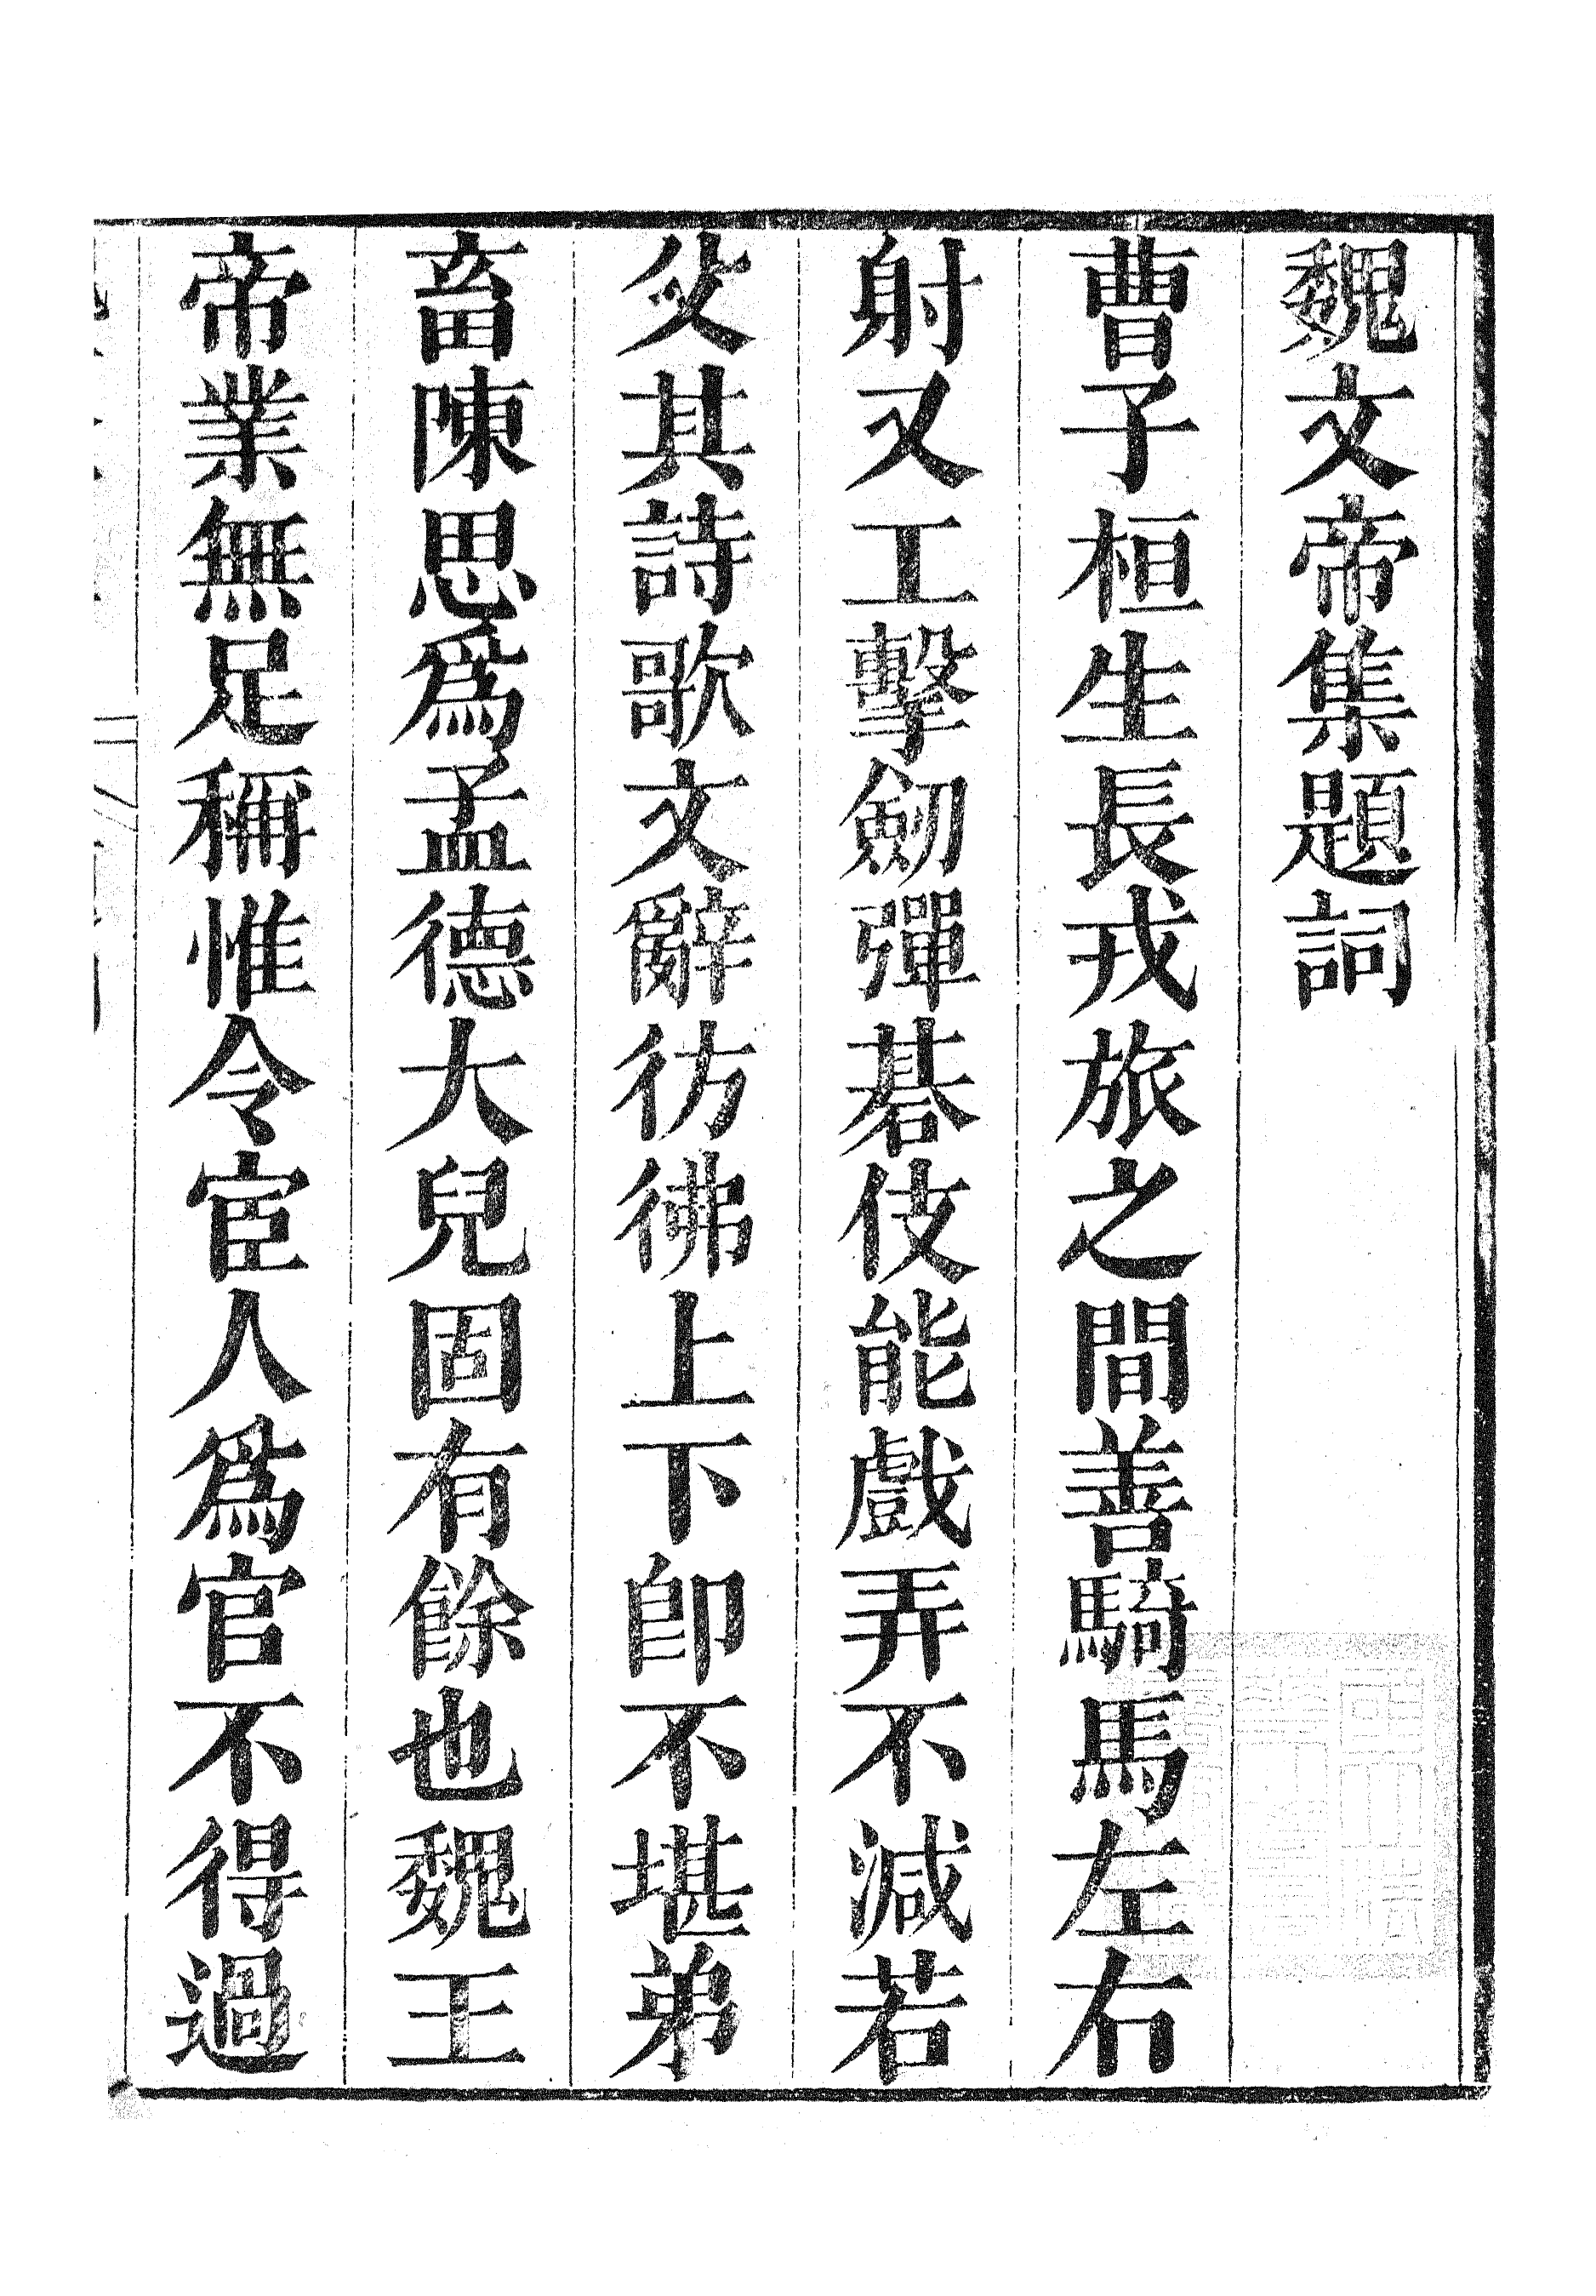 魏文帝集題詞
曹子桓生長戎旅之間善騎馬左右
射又工擊劒彈碁伎能戲弄不減若
父其詩歌文辭彷彿上下卽不堪弟
畜陳思爲孟德大兒固有餘也魏王
帝業無足稱惟令宦人爲官不得過